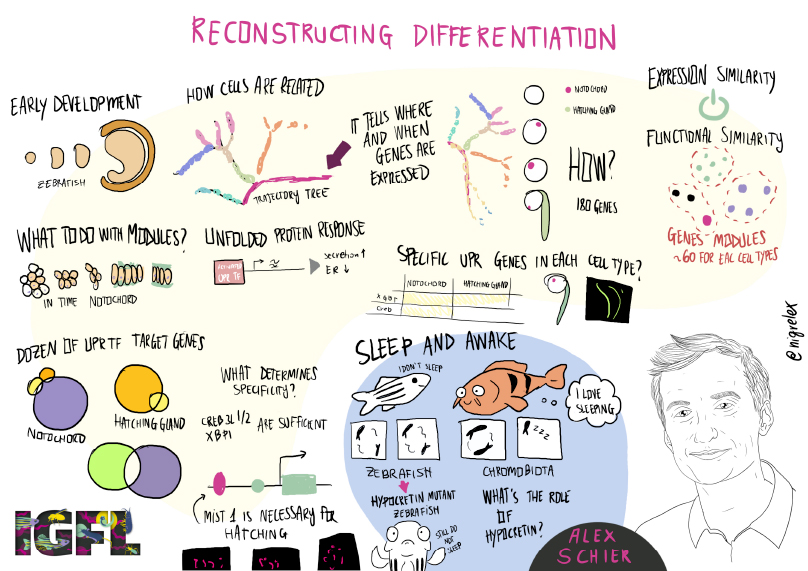 RECONSTRUCTING DIFFERENTIATION
EARLY DEVELOPMENT
ZEBRAFISH
HOW CELLS ARE RELATED
TRAJECTORY TREE
IT TELLS WHERE
AND WHEN
GENES ARE
EXPRESSED
NOTOCHORD
HATCHING GLAND
HOW?
180 GENES
EXPRESSION SIMILARITY
FUNCTIONAL SIMILARITY
GENES MODULES
~60 FOR EAC CELL TYPES
WHAT TO DO WITH MODULES?
IN TIME NOTOCHORD
UNFOLDED PROTEIN RESPONSE
UPR TF
secretion ↑
ER ↓
SPECIFIC UPR GENES IN EACH CELL TYPE?
NOTOCHORD HATCHING GLAND
XBP1
Creb
DOZEN OF UPR TF TARGET GENES
NOTOCHORD
HATCHING GLAND
WHAT DETERMINES
SPECIFICITY?
CREB3L1/2
XBP1
ARE SUFFICIENT
MIST1 IS NECESSARY FOR
HATCHING
SLEEP AND AWAKE
I DON'T SLEEP
I LOVE
SLEEPING
ZZZ
ZEBRAFISH
CHROMOBIOTA
HYPOCRETIN MUTANT
ZEBRAFISH
STILL DO
NOT
SLEEP
WHAT'S THE ROLE
OF
HYPOCRETIN?
ALEX
SCHIER
@nigrelex
IGFL